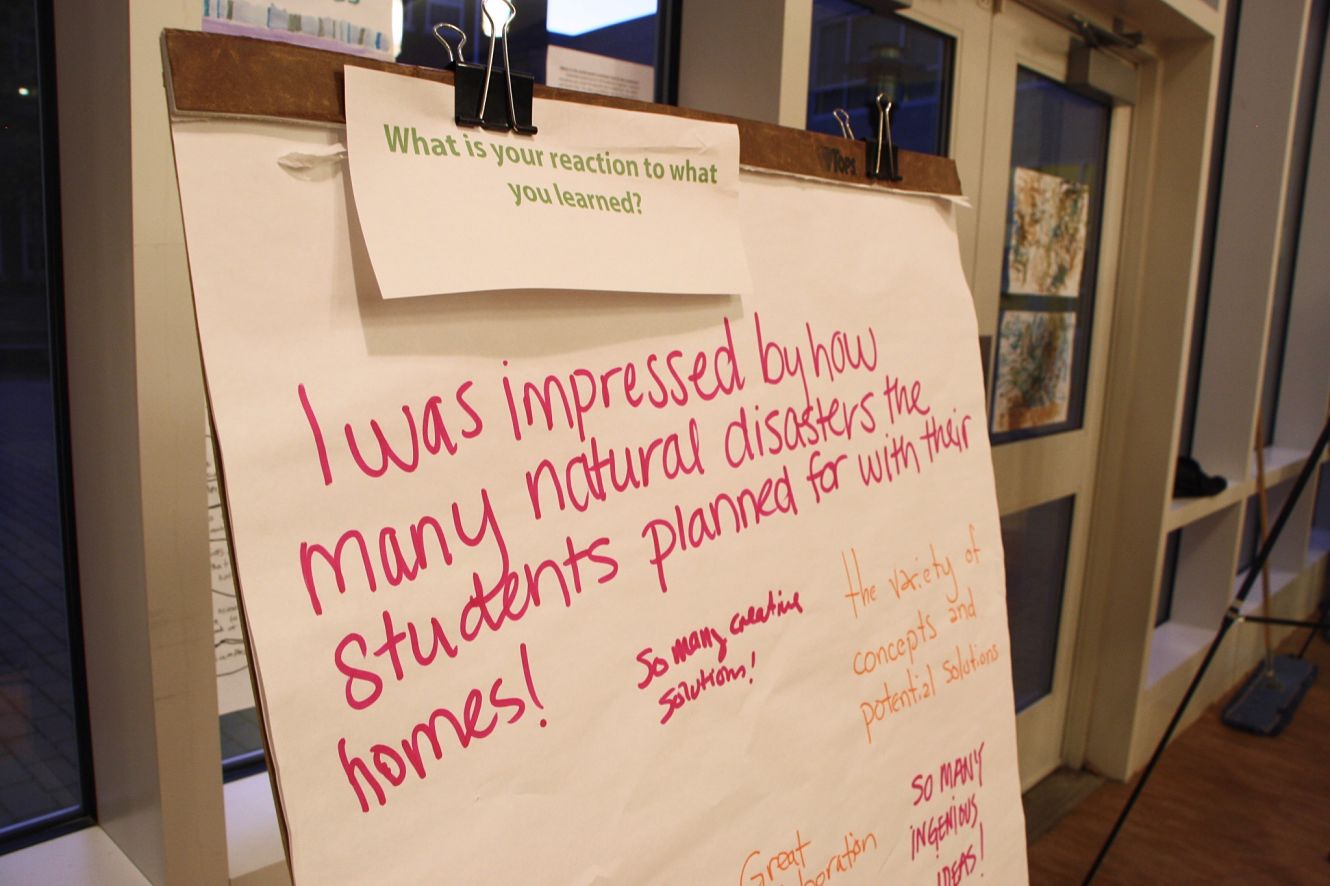 What is your reaction to what
you learned?
TOPS
I was impressed by how
many natural disasters the
students planned for with their
homes!
So many creative
solutions!
the variety of
concepts and
potential solutions
SO MANY
INGENIOUS
IDEAS!
Great